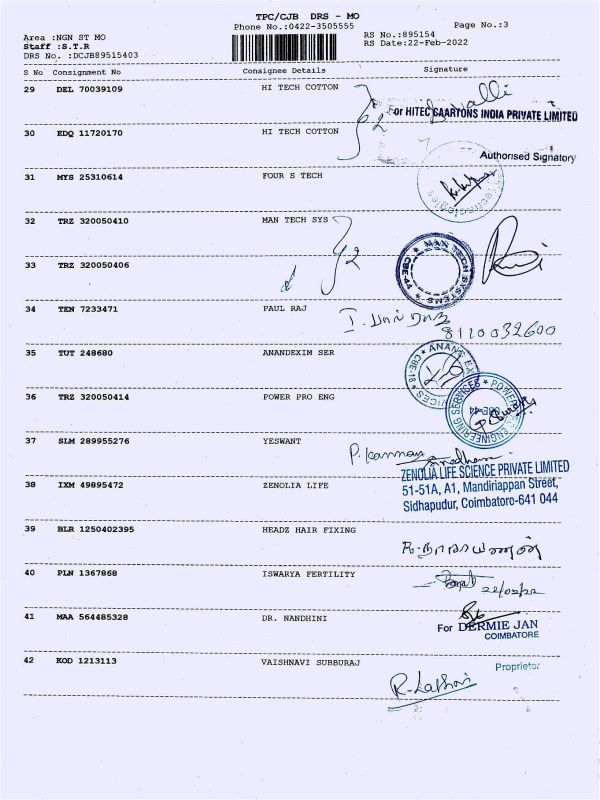 TPC/CJB DRS - MO
Phone No.:0422-3505555
Page No.:3
Area :NGN ST MO
RS No.:895154
Staff :S.T.R
RS Date:22-Feb-2022
DRS No. :DCJB89515403
S No Consignment No Consignee Details Signature
29 DEL 70039109 HI TECH COTTON
For HITEC CAARTONS INDIA PRIVATE LIMITED
30 EDQ 11720170 HI TECH COTTON
Authorised Signatory
31 MYS 25310614 FOUR S TECH
32 TRZ 320050410 MAN TECH SYS
MAN TECH SYSTEMS CBE-44
33 TRZ 320050406
34 TEN 7233471 PAUL RAJ
8110032600
35 TUT 248680 ANANDEXIM SER
36 TRZ 320050414 POWER PRO ENG
37 SLM 289955276 YESWANT
P. Kannan
ZENOLIA LIFE SCIENCE PRIVATE LIMITED
38 IXM 49895472 ZENOLIA LIFE
51-51A, A1, Mandiriappan Street,
Sidhapudur, Coimbatore-641 044
39 BLR 1250402395 HEADZ HAIR FIXING
40 PLN 1367868 ISWARYA FERTILITY
22/02/22
41 MAA 564485328 DR. NANDHINI
For DERMIE JAN
COIMBATORE
42 KOD 1213113 VAISHNAVI SUBBURAJ
Proprietor